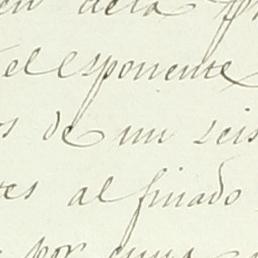 en dela
el esponente
os de un seis
tes al finado
por cuya